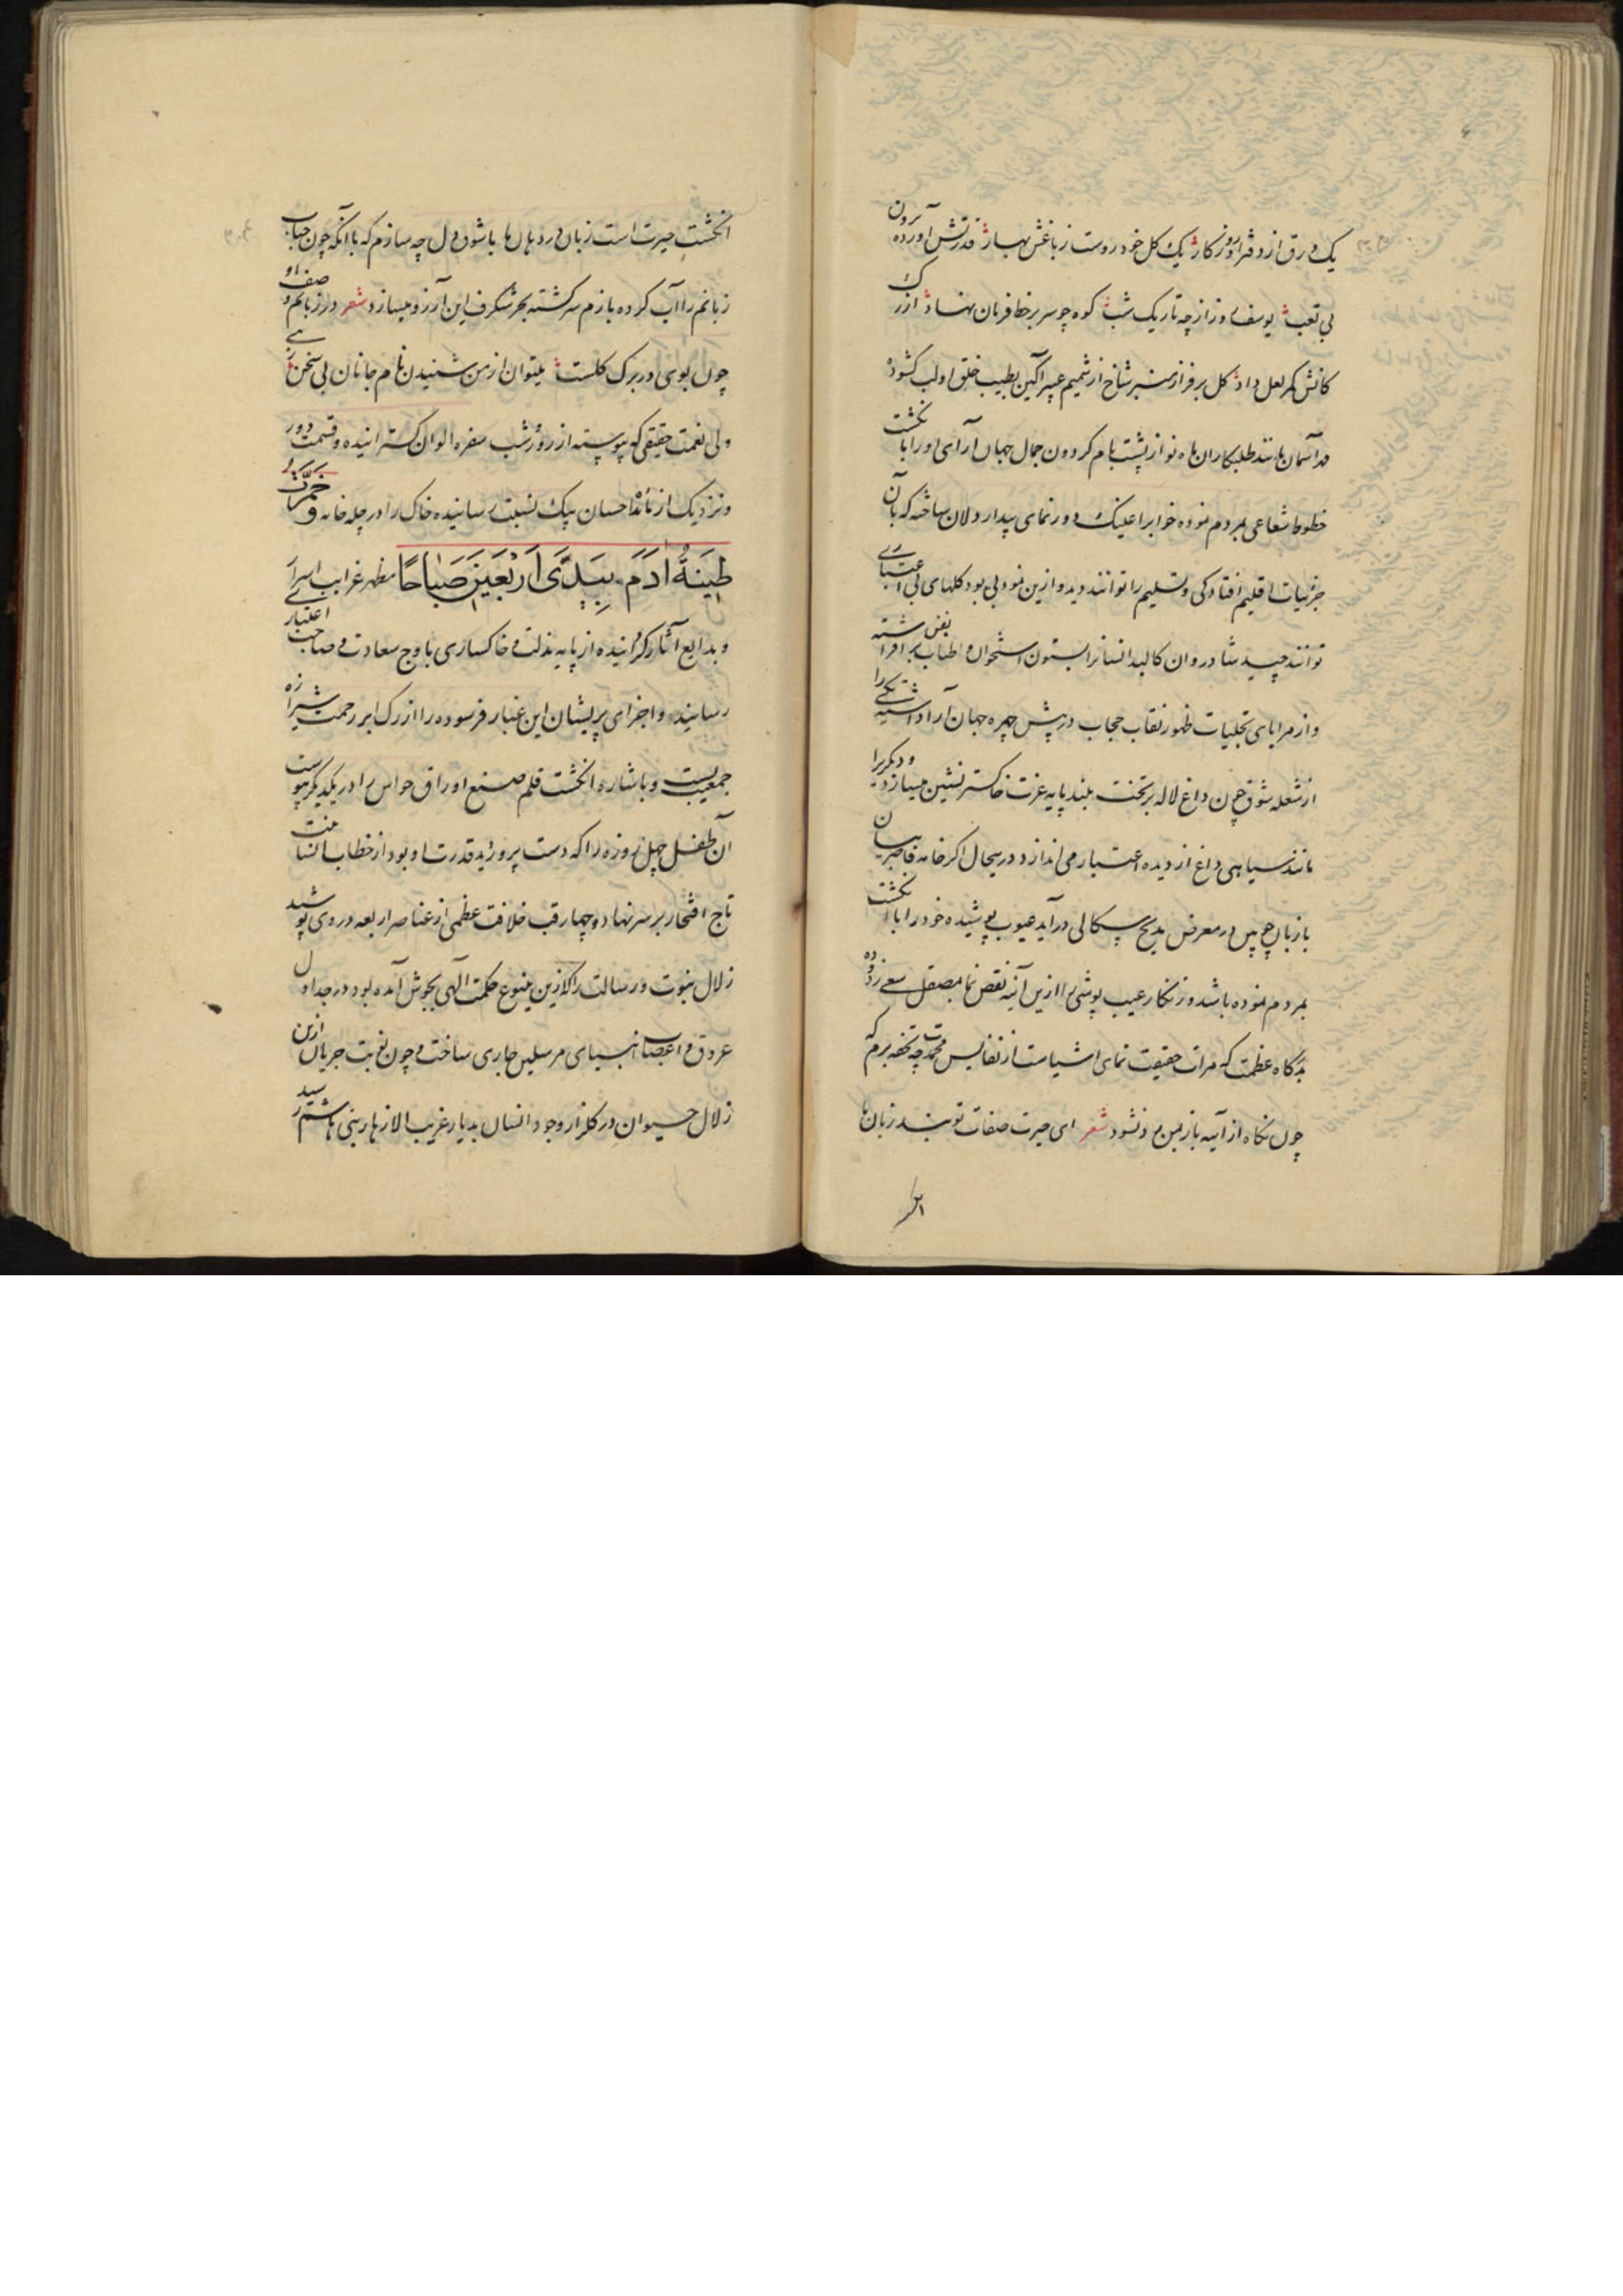 یک ورق از دفتر او روزگار یک گل خودروست ز باغش بهار قدرتش آورده برون
بی تعب یوسف روز از چه تاریک شب کوه چو سر بر خط فرمان نهاد از رک
کانش کمر لعل داد گل بر فراز منبر شاخ از شمیم عبیرآگین بطیب خلق او لب گشوده
طلبکاران ماه نو از پشت بام گردون جمال جهان آرای او را با نگشت
خطوط شعاعی بمردم نموده خوابرا عینک دور نمای بیدار دلان ساخته که بآن
جزئیات اقلیم افتادگی و تسلیم را توانند دید و ازین نمود بی بود گلهای بی اعتباری
توانند چید شادروان کالبد انسانرا بستون استخوان و طناب نفس برافراشته
و از مرایای تجلیات ظهور نقاب حجاب در پیش چهره جهان آرا داشته یکی را
از شعله شوق چون داغ لاله بر تخت بلند پایه عزت خاکستر نشین میسازد و دیگریرا
مانند سیاهی داغ از دیده اعتبار می اندازد درینحال اگر خامه قاصر بیان
با زبان چوبین در معرض مدیح سگالی درآید عیوب پوشیده خود را با نگشت
بمردم نموده باشد و زنگار عیب پوشی را ازین آئینه نقص نما بمصقل سعی زدوده
بدرگاه عظمت که مرات حقیقت نمای اشیاست از نفایس محمدت چه تحفه برم که
چون نگاه از آیینه باز بمن رد نشود شعر ای حیرت صفات تو بند زبان ها
انگشت حیرت است زبان در دهان ها با شوق دل چه سازم که با آنکه چون حباب
زبانم را آب کرده بازم سرگشته بحر شگرف این آرزو میسازد شعر در زبانم وصف او
چون بوی در برگ گلست میتوان از من شنیدن نام جانان بی سخن
ولی نعمت حقیقی که پیوسته از روز و شب سفره الوان گسترانیده و قسمت دور
و نزدیک از مائده احسان بیک نسبت رسانیده خاک را در چله خانه و خمرت
طینة آدم بیدی اربعین صباحا مظهر غرایب اسرار
و بدایع آثار گردانیده از پایه مذلت و خاکساری باوج سعادت و صاحب اعتباری
رسانید و اجزای پریشان این غبار فرسوده را از رگ ابر رحمت شیرازه
جمعیت بست و باشاره انگشت قلم صنع اوراق حواس را در یکدیگر پیوست
آن طفل چهل روزه را که دست پرورد ید قدرت او بود از خطاب
تاج افتخار بر سر نهاد و چهارقب خلافت عظمی از عناصر اربعه در وی پوشید
زلال نبوت و رسالت را که ازین ینبوع حکمت الهی بجوش آمده بود در جداول
عروق و اعصاب انبیای مرسلین جاری ساخت و چون نوبت جریان ازین
زلال حیوان در گلزار وجود انسان بدیار غریب الازهار بنی هاشم رسید